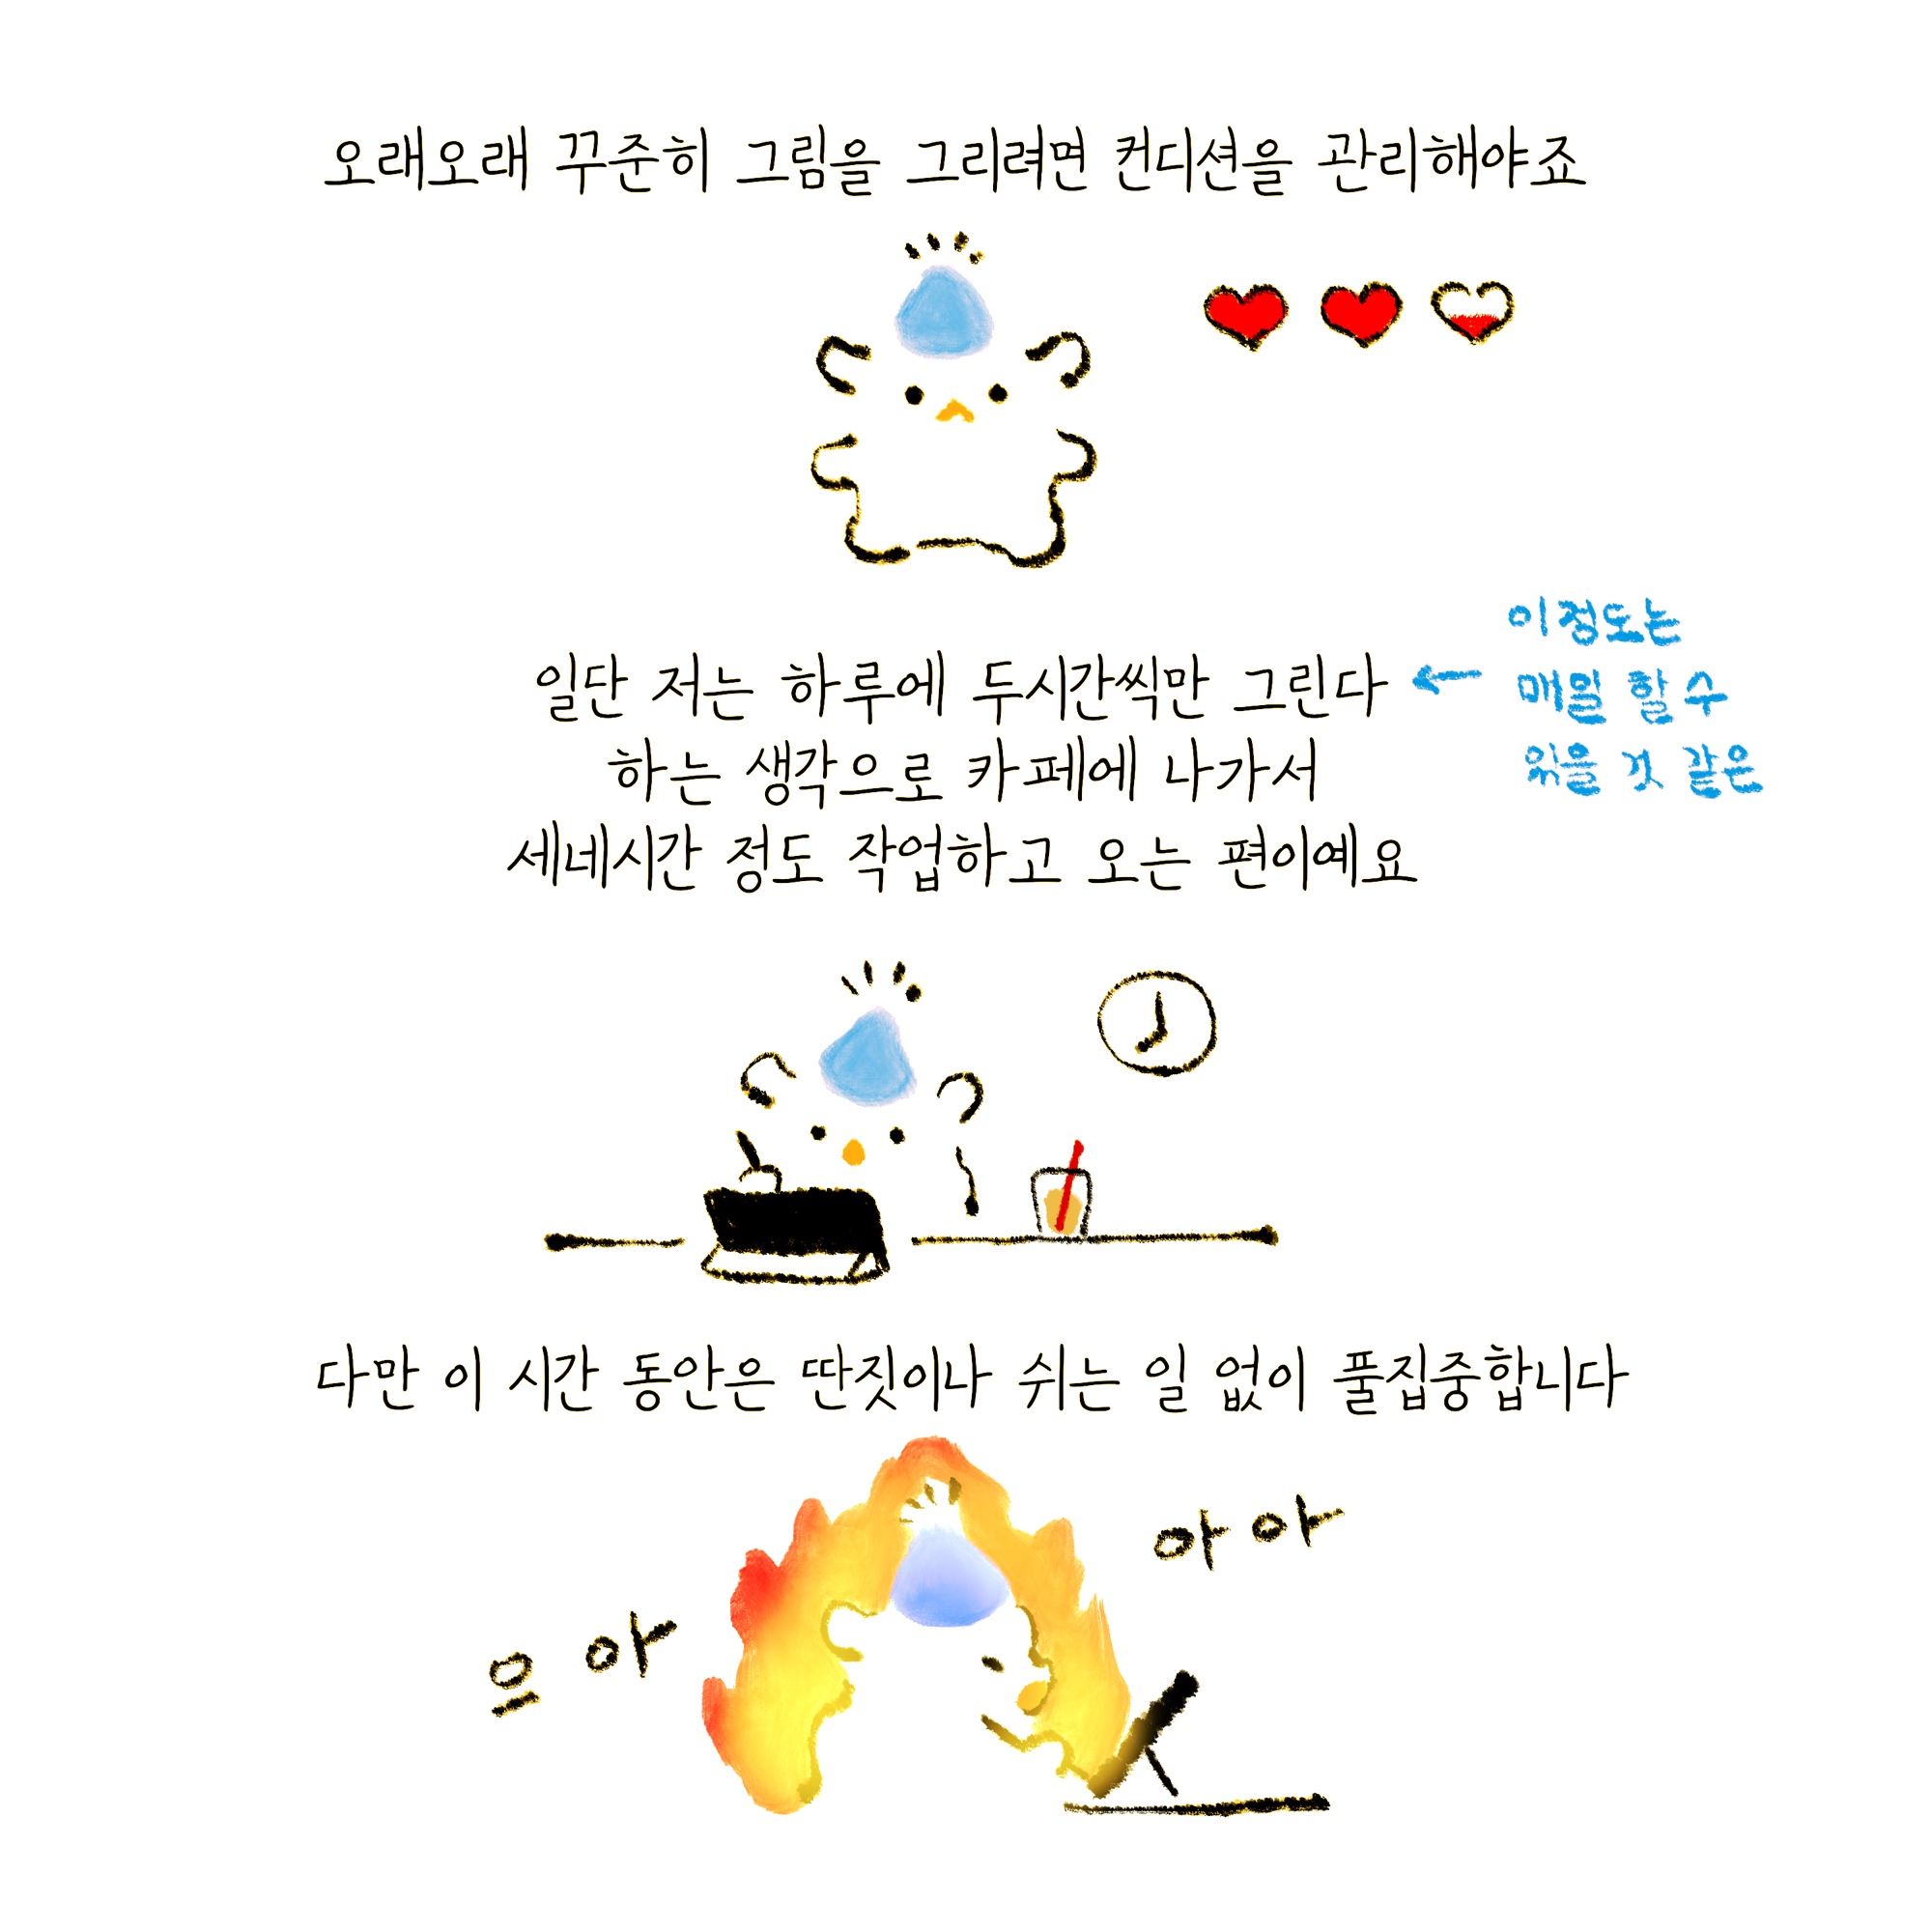 오래오래 꾸준히 그림을 그리려면 컨디션을 관리해야죠
일단 저는 하루에 두시간씩만 그린다
하는 생각으로 카페에 나가서
세네시간 정도 작업하고 오는 편이예요
이정도는
매일 할 수
있을 것 같은
다만 이 시간 동안은 딴짓이나 쉬는 일 없이 풀집중합니다
으 아
아 아